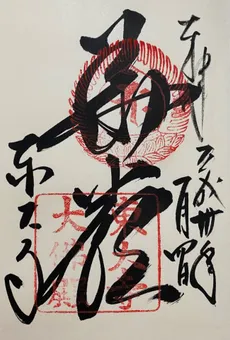 奉拝
平成卅年
華厳
東大寺
東大寺
大佛殿